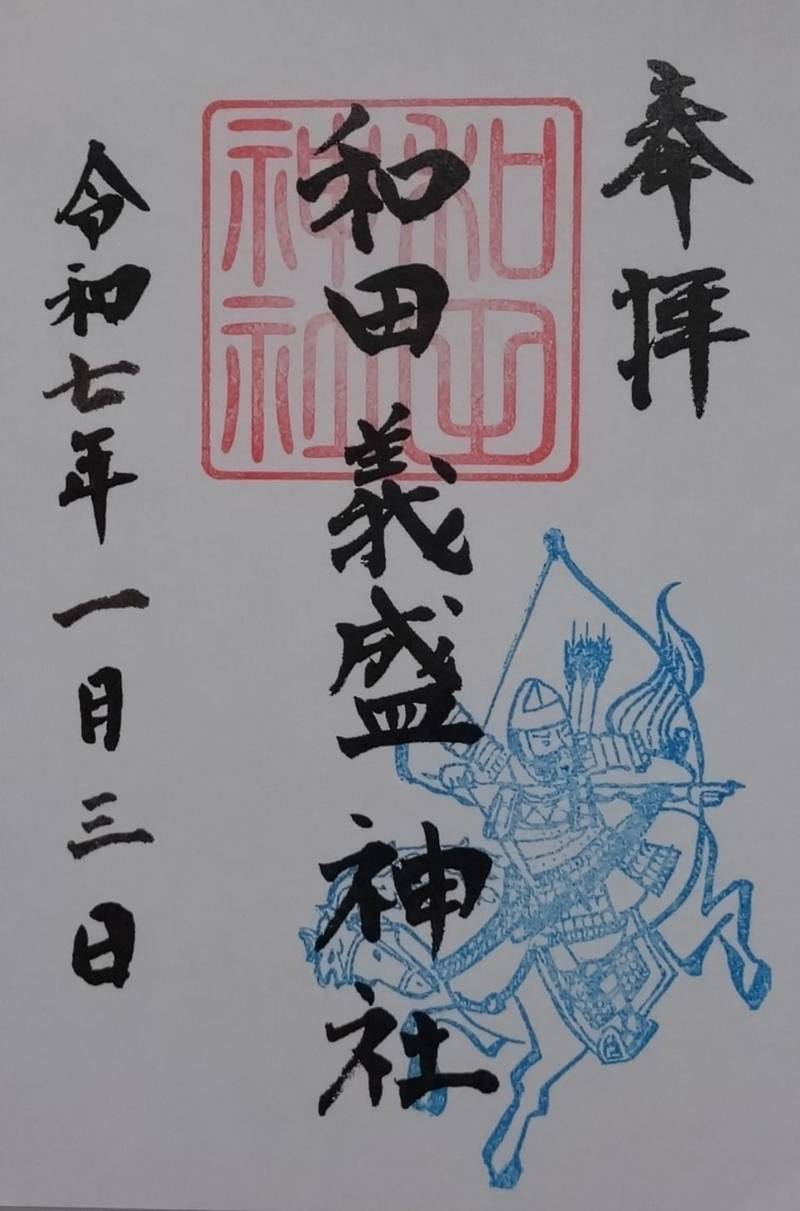 奉拝
和田義盛神社
和田
神社
令和七年一月三日